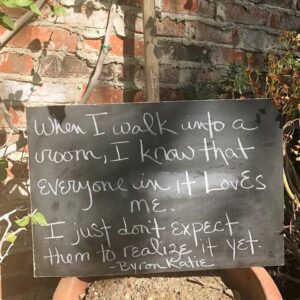 When I walk into a
room, I know that
everyone in it LovEs
me.
I just don't expect
them to realize it yet.
-Byron Katie-